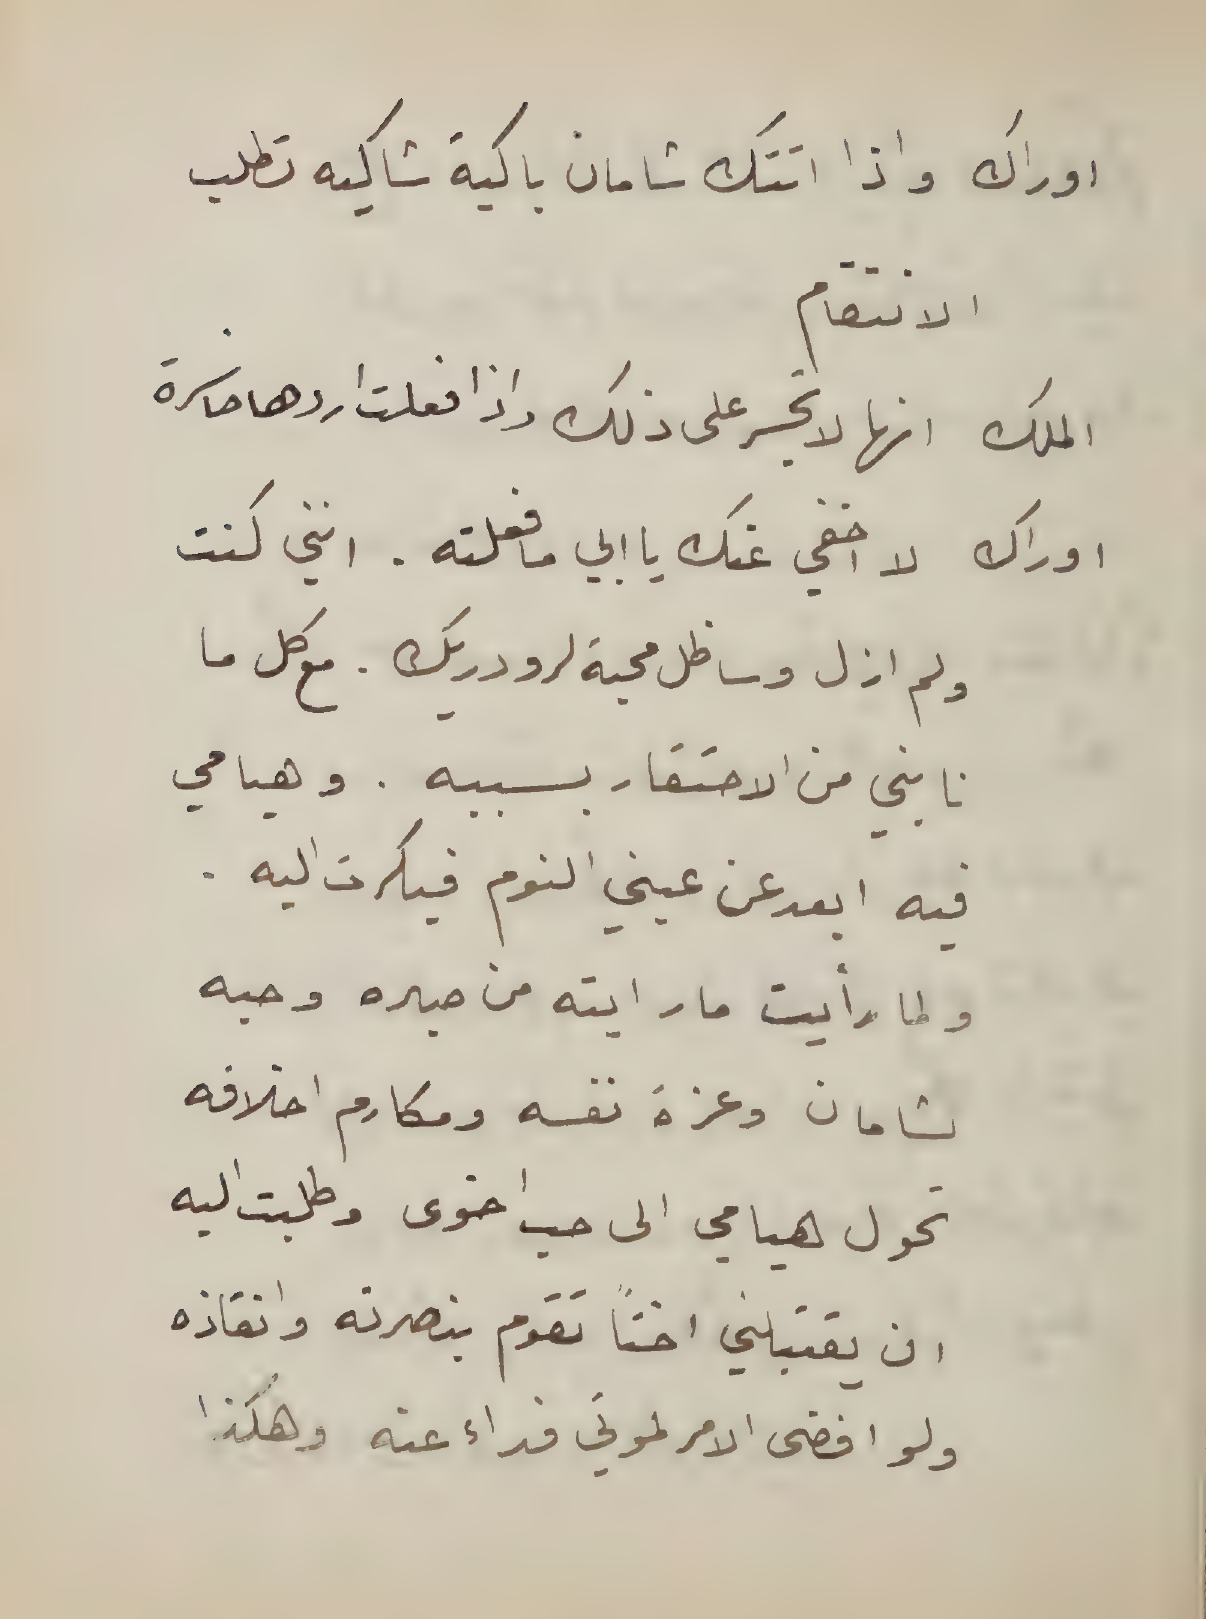 اوراك واذا اتتك شامان باكية شاكيه تطلب
الانتقام
الملك انها لا تجسر على ذلك واذا فعلت اردها خاسرة
اوراك لا اخفي عنك يا ابي ما فعلته . انني كنت
ولم ازل وساظل محبة لرودريك . مع كل ما
نابني من الاحتقار بسببه . وهيامي
فيه ابعد عن عيني النوم فبكرت اليه .
ولما رأيت ما رايته من صبره وحبه
لشامان وعزة نفسه ومكارم اخلاقه
تحول هيامي الى حب اخوى وطلبت اليه
ان يقتبلني اختاً تقوم بنصرته وانقاذه
ولو افضى الامر لموتي فداء عنه وهكذا